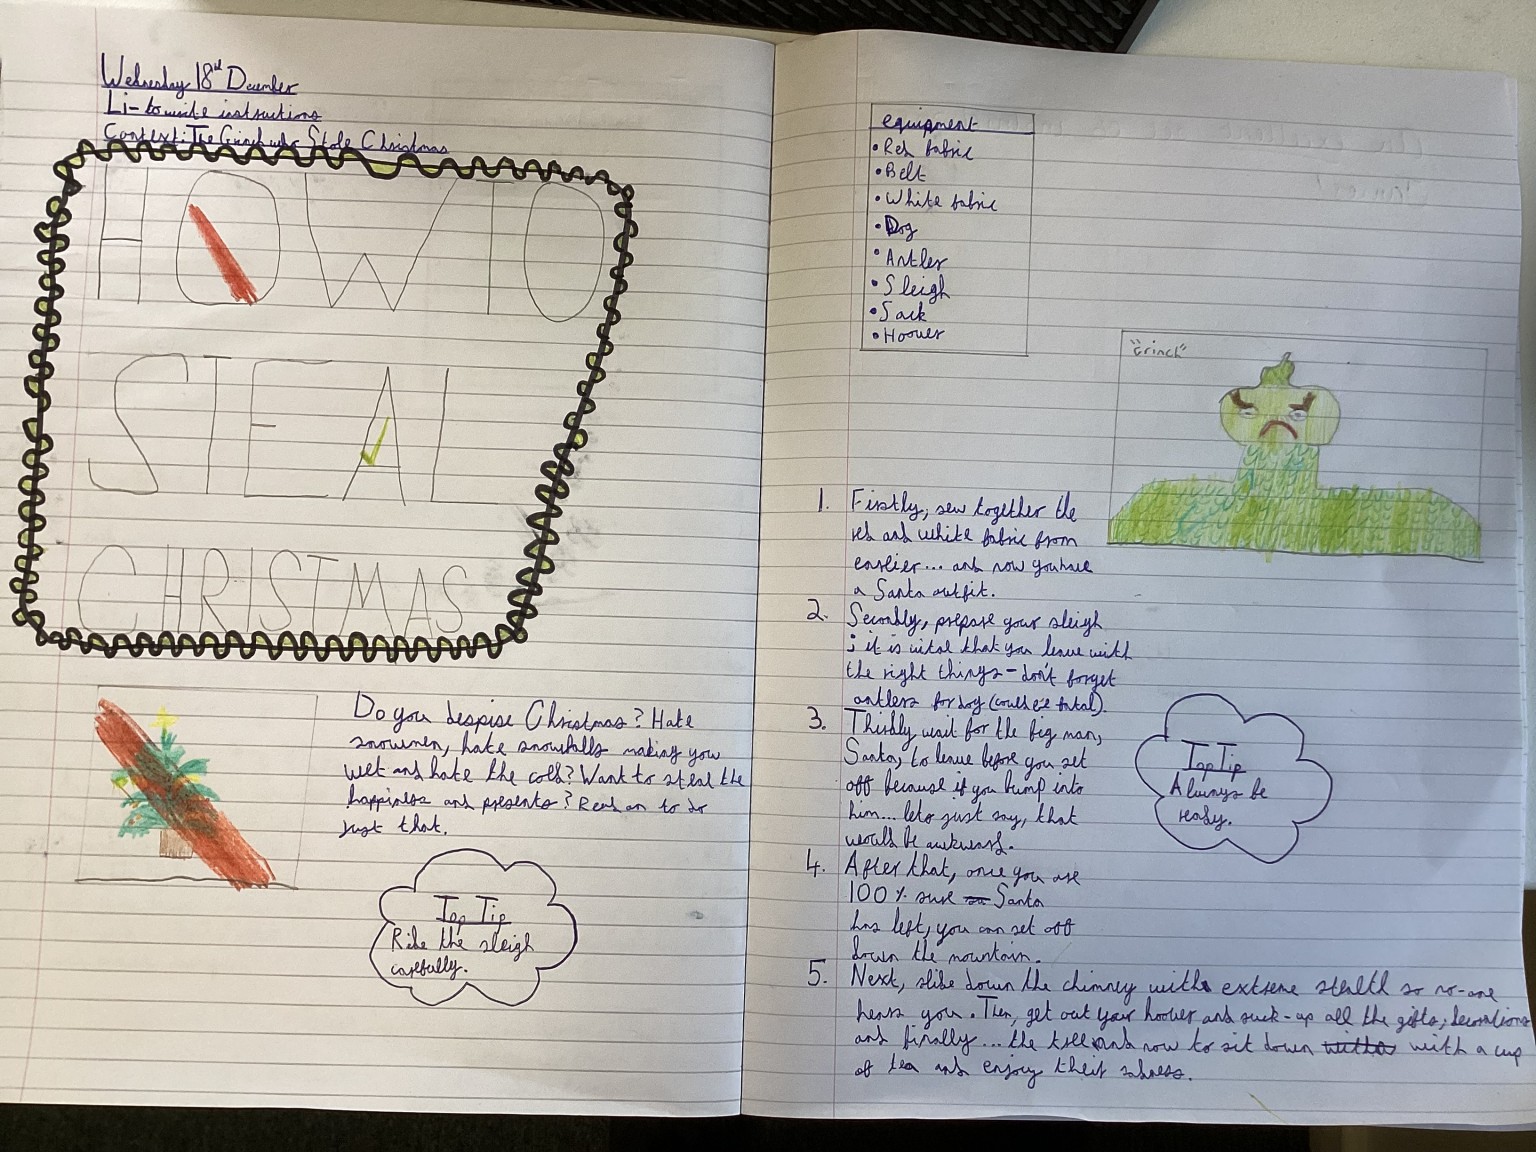 Wednesday 18th December
Li- to write instructions
Context: The Grinch who Stole Christmas
HOW TO
STEAL
CHRISTMAS
Do you despise Christmas? Hate
snowmen, hate snowfalls making you
wet and hate the cold? Want to steal the
happiness and presents? Read on to do
just that.
Top Tip
Ride the sleigh
carefully.
equipment
• Red fabric
• Belt
• White fabric
• Dog
• Antler
• Sleigh
• Sack
• Hoover
"Grinch"
1. Firstly, sew together the
red and white fabric from
earlier... and now you have
a Santa outfit.
2. Secondly, prepare your sleigh
; it is vital that you leave with
the right things - don't forget
antlers for dog (could be fatal).
3. Thirdly wait for the big man,
Santa, to leave before you set
off because if you bump into
him... lets just say, that
would be awkward.
Top Tip
Always be
ready.
4. After that, once you are
100% sure Santa
has left, you can set off
down the mountain.
5. Next, slide down the chimney with extreme stealth so no-one
hears you. Then, get out your hoover and suck-up all the gifts, decorations
and finally... the tree and now to sit down with a cup
of tea and enjoy their sadness.